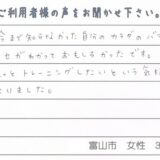 ご利用者様の声をお聞かせ下さい。
今まで知らなかった自分のカラダのバ
セがわかっておもしろかったです。
っとトレーニングしたいという気持
なりました。
富山市 女性 3